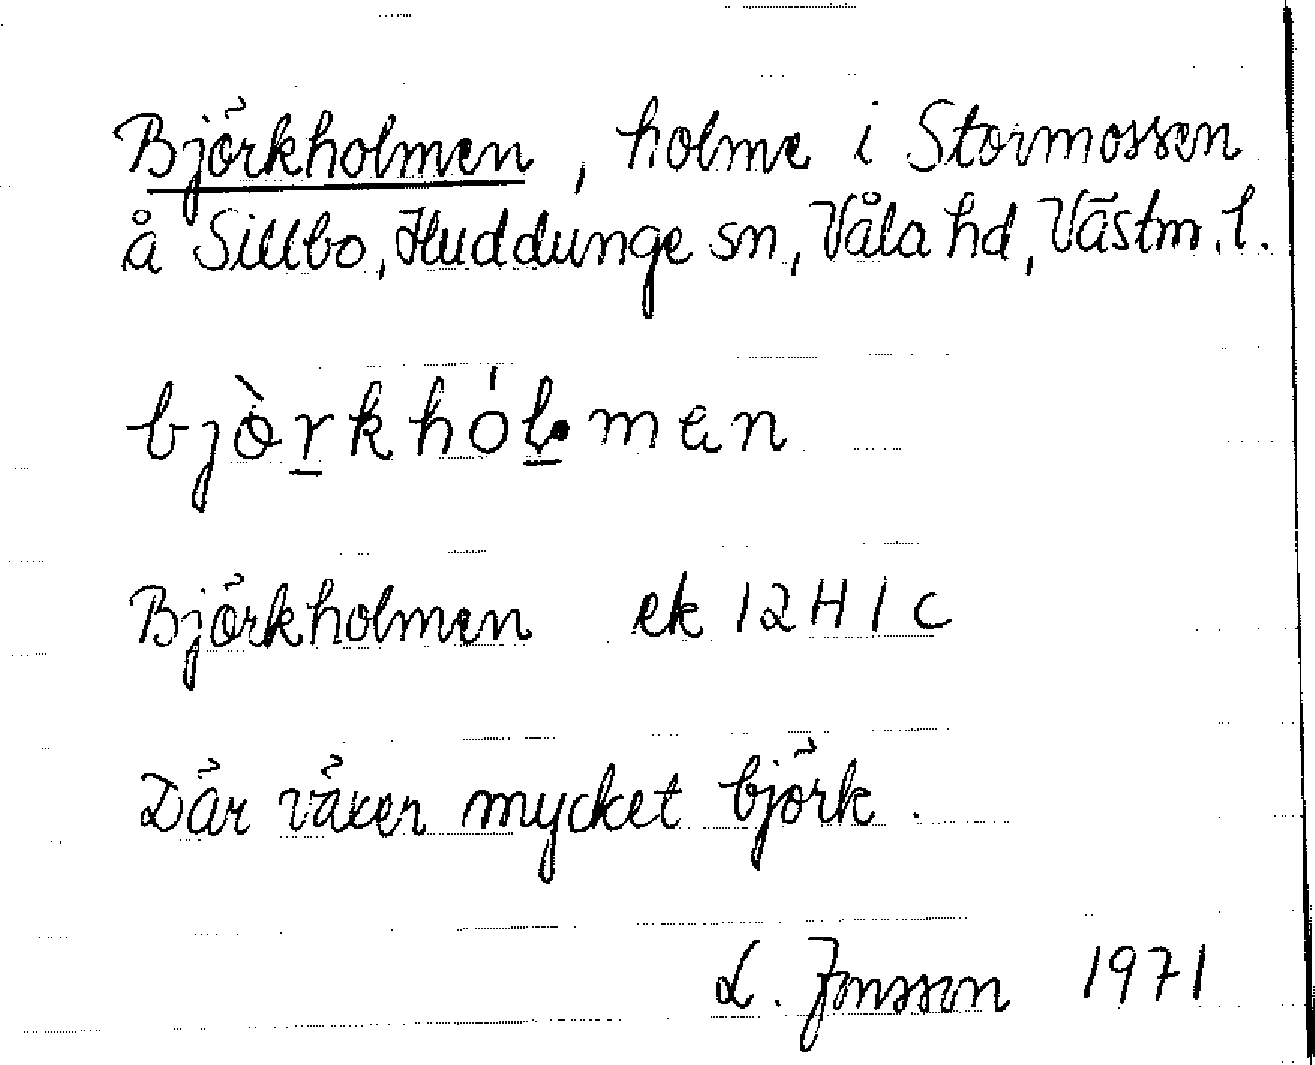 Björkholmen, holme i Stormossen
å Sillbo, Huddunge sn, Våla hd, Västm. l.
bjòrkhól.men
Björkholmen ek 12H1c
Där växer mycket björk.
L. Jonsson 1971